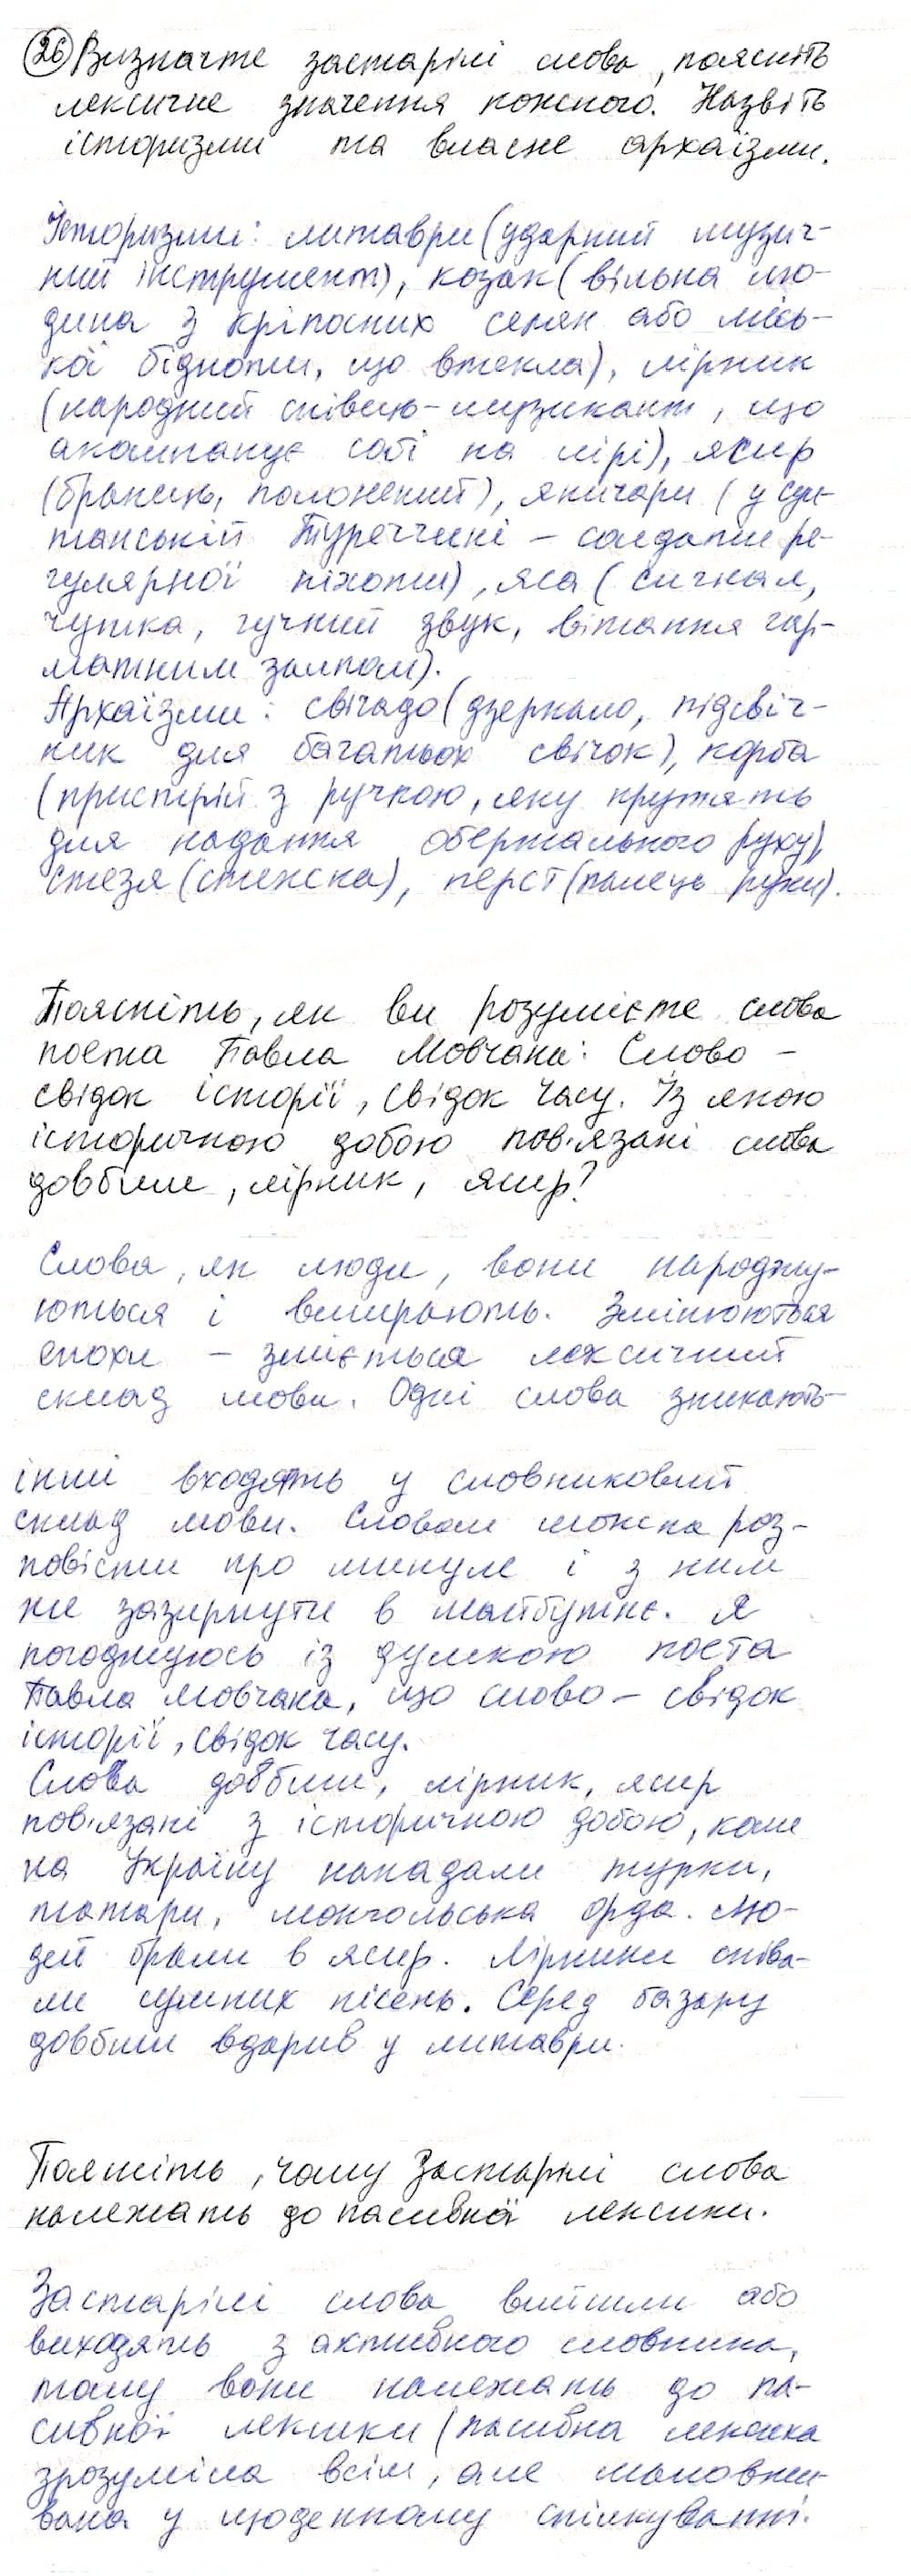 26 Визначте застарілі слова, поясніть
лексичне значення кожного. Назвіть
історизми та власне архаїзми.
Історизми: литаври (ударний музич-
ний інструмент), козак (вільна лю-
дина з кріпосних селян або місь-
кої бідноти, що втекла), лірник
(народний співець-музикант, що
акомпанує собі на лірі), ясир
(бранець, полонений), яничари (у сул-
танській Туреччині – солдати ре-
гулярної піхоти), яса (сигнал,
чутка, гучний звук, вітання гар-
матним залпом).
Архаїзми: свічадо (дзеркало, підсвіч-
ник для багатьох свічок), корба
(пристрій з ручкою, яку крутять
для надання обертального руху),
стезя (стежка), перст (палець руки).
Поясніть, як ви розумієте слова
поета Павла Мовчана: Слово –
свідок історії, свідок часу. Із якою
історичною добою пов'язані слова
довбиш, лірник, ясир?
Слова, як люди, вони народжу-
ються і вмирають. Змінюються
епохи – зміється лексичний
склад мови. Одні слова зникають –
інші входять у словниковий
склад мови. Словом можна роз-
повісти про минуле і з ним
же зазирнути в майбутнє. Я
погоджуюсь із думкою поета
Павла Мовчана, що слово – свідок
історії, свідок часу.
Слова довбиш, лірник, ясир
пов'язані з історичною добою, коли
на Україну нападали турки,
татари, монгольська орда. Лю-
дей брали в ясир. Лірники співа-
ли сумних пісень. Серед базару
довбиш вдарив у литаври.
Поясніть, чому застарілі слова
належать до пасивної лексики.
Застарілі слова вийшли або
виходять з активного словника,
тому вони належать до па-
сивної лексики (пасивна лексика
зрозуміла всім, але маловжи-
вана у щоденному спілкуванні.